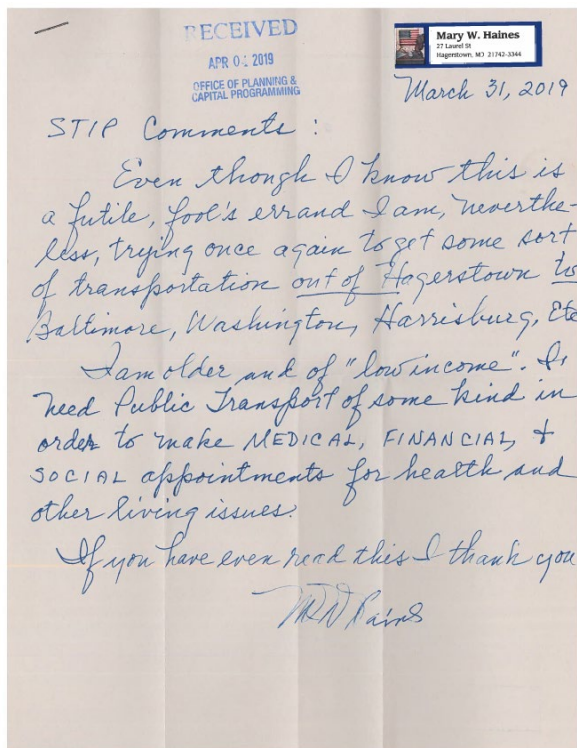 RECEIVED
APR 01 2019
OFFICE OF PLANNING &
CAPITAL PROGRAMMING
Mary W. Haines
27 Laurel St
Hagerstown, MD 21742-3344
March 31, 2019
STIP Comments :
Even though I know this is
a futile, fool's errand I am, neverthe-
less, trying once again to get some sort
of transportation out of Hagerstown to
Baltimore, Washington, Harrisburg, Etc
I am older and of "low income". I
need Public Transport of some kind in
order to make MEDICAL, FINANCIAL, +
SOCIAL appointments for health and
other living issues.
If you have even read this I thank you